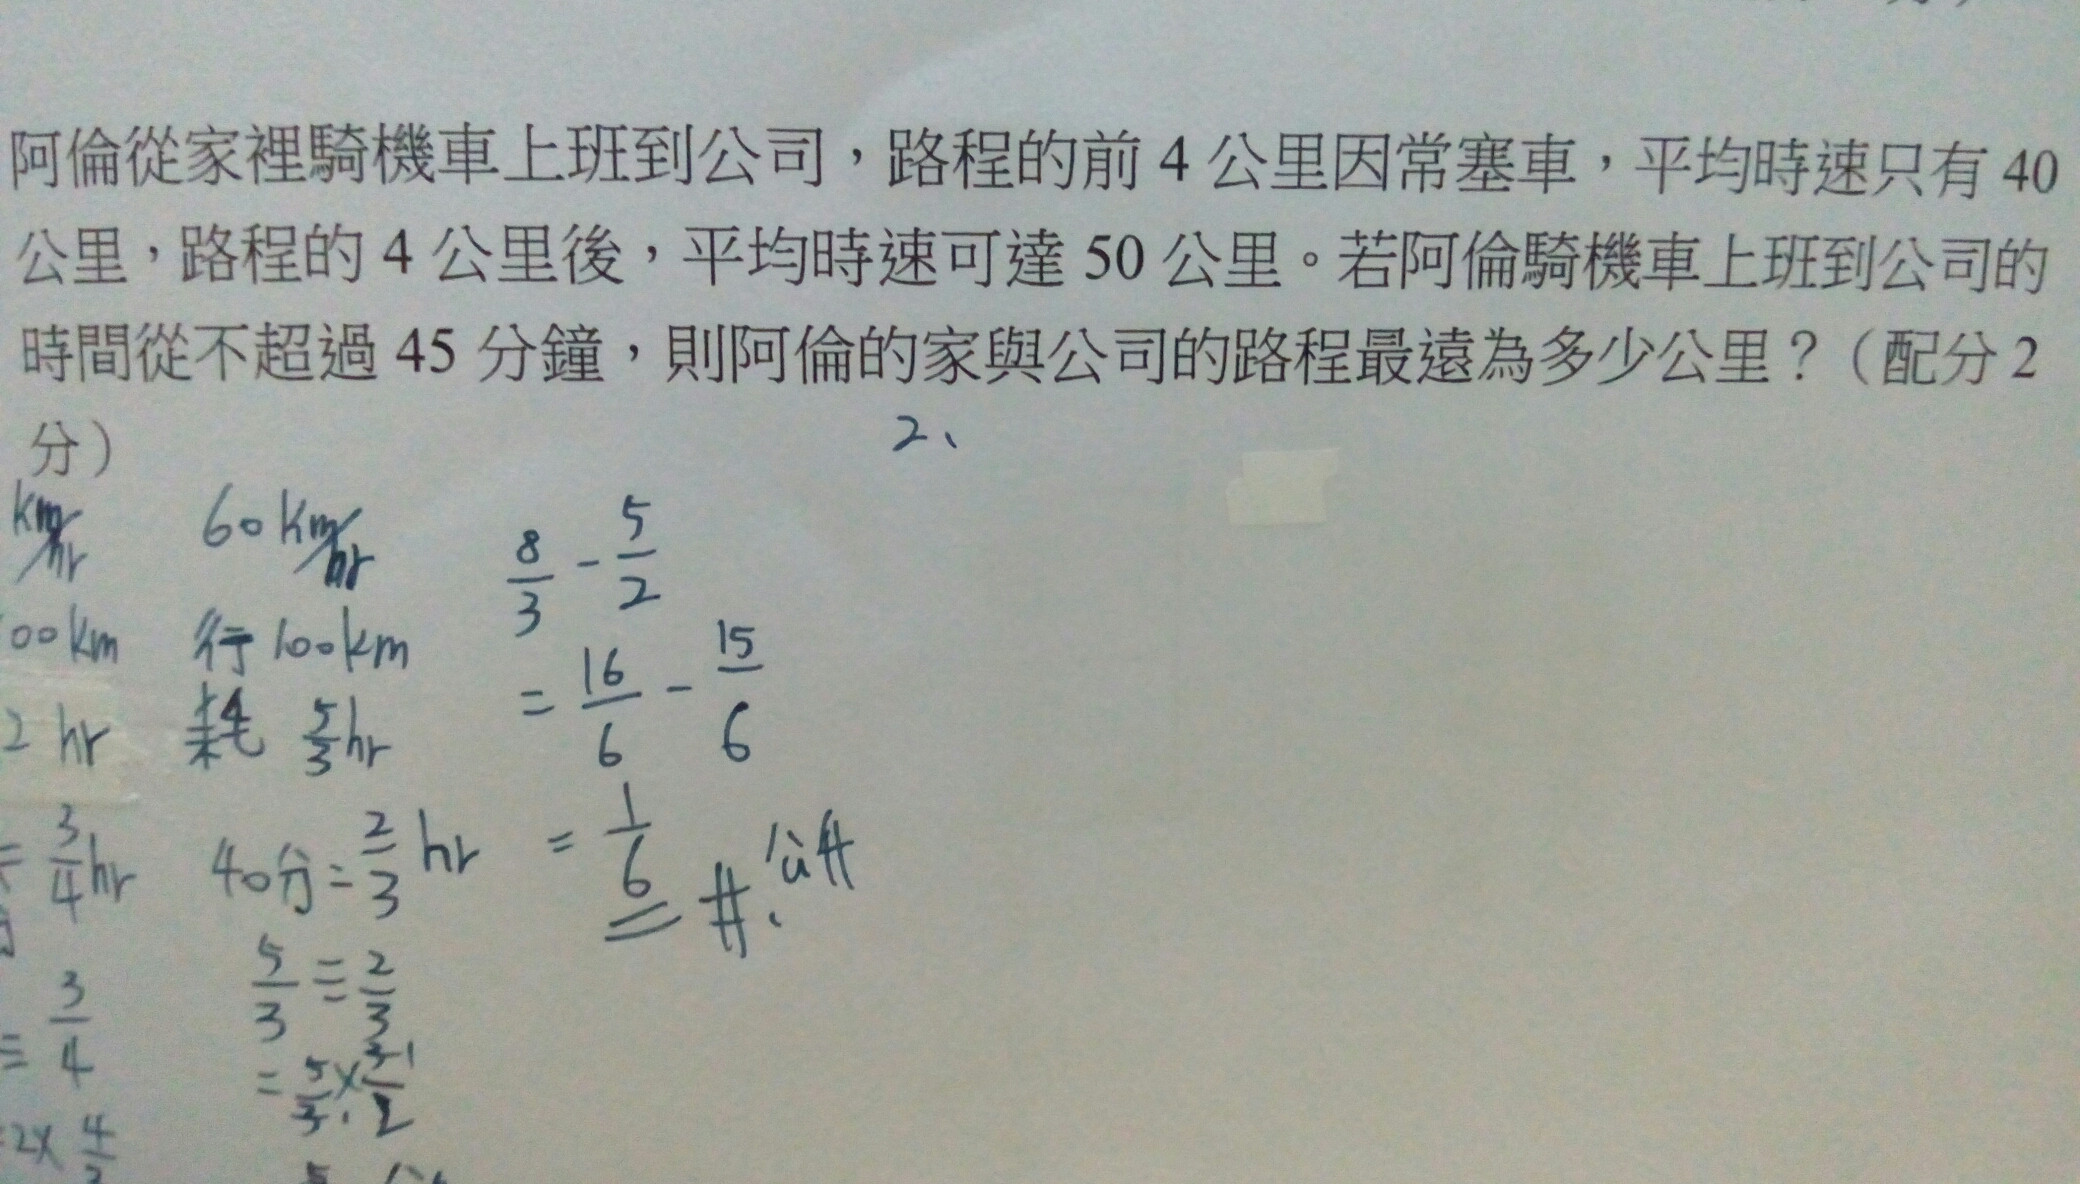 阿倫從家裡騎機車上班到公司，路程的前 4 公里因常塞車，平均時速只有 40
公里，路程的 4 公里後，平均時速可達 50 公里。若阿倫騎機車上班到公司的
時間從不超過 45 分鐘，則阿倫的家與公司的路程最遠為多少公里？（配分 2
分）
2、
km/hr
60 km/hr
00 km
行 100 km
2 hr
耗 5/3 hr
= 3/4 hr
40分 = 2/3 hr
÷ 3/4
5/3 ÷ 2/3
2 × 4/3
= 5/3 × 3/2
8/3 - 5/2
= 16/6 - 15/6
= 1/6 #.